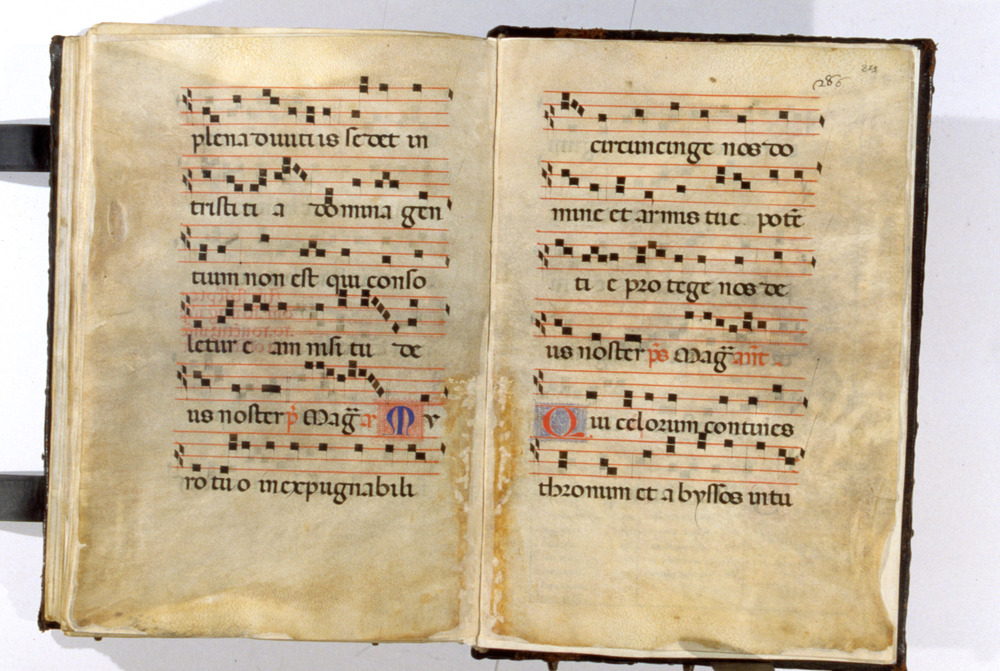 plena diviciis sedet in
tristi ti a domina gen
tium non est qui conso
letur e am nisi tu de
us noster p̃ Mag̃ a M v
ro tu o inexpugnabili
286
circumcinge nos do
mine et armis tue potẽ
ti e pro tege nos de
us noster p̃s Mag̃ añt
Qui celorum contines
thronum et a byssos intu